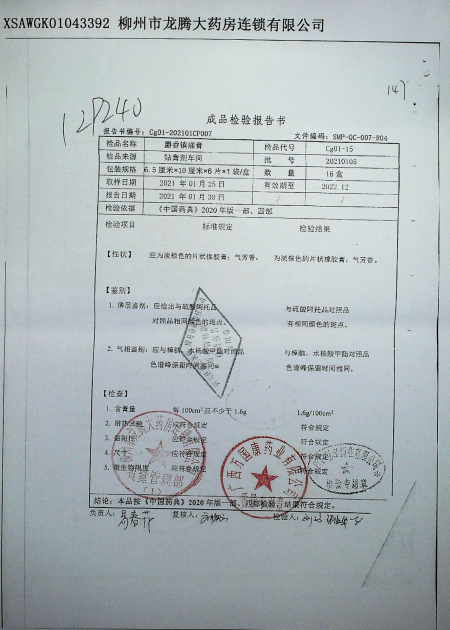 XSAWGK01043392 柳州市龙腾大药房连锁有限公司
147
成品检验报告书
报告书编号：Cg01-202101CP007 文件编码：SMP-QC-007-R04
检品名称 麝香镇痛膏 检品代号 Cg01-15
检品来源 贴膏剂车间 批 号 20210105
包装规格 6.5厘米×10厘米×6片×1袋/盒 数 量 16盒
取样日期 2021年01月25日 有效期至 2022.12
报告日期 2021年01月30日
检验依据 《中国药典》2020年版一部、四部
检验项目 标准规定 检验结果
【性状】 应为淡棕色的片状橡胶膏；气芳香。 为淡棕色的片状橡胶膏；气芳香。
【鉴别】
1. 薄层鉴别：应检出与硫酸阿托品 与硫酸阿托品对照品
对照品相同颜色的斑点。 有相同颜色的斑点。
2. 气相鉴别：应与樟脑、水杨酸甲酯对照品 与樟脑、水杨酸甲酯对照品
色谱峰保留时间相同。 色谱峰保留时间相同。
【检查】
1. 含膏量 每100cm²应不少于1.6g 1.6g/100cm²
2. 耐热试验 应符合规定 符合规定
3. 赋形性 应符合规定 符合规定
4. 尺寸 应符合规定 符合规定
5. 微生物限度 应符合规定 符合规定
质量管理部
(1)
结论：本品按《中国药典》2020年版一部、四部检验，结果符合规定。
负责人： 复核人： 检验人：